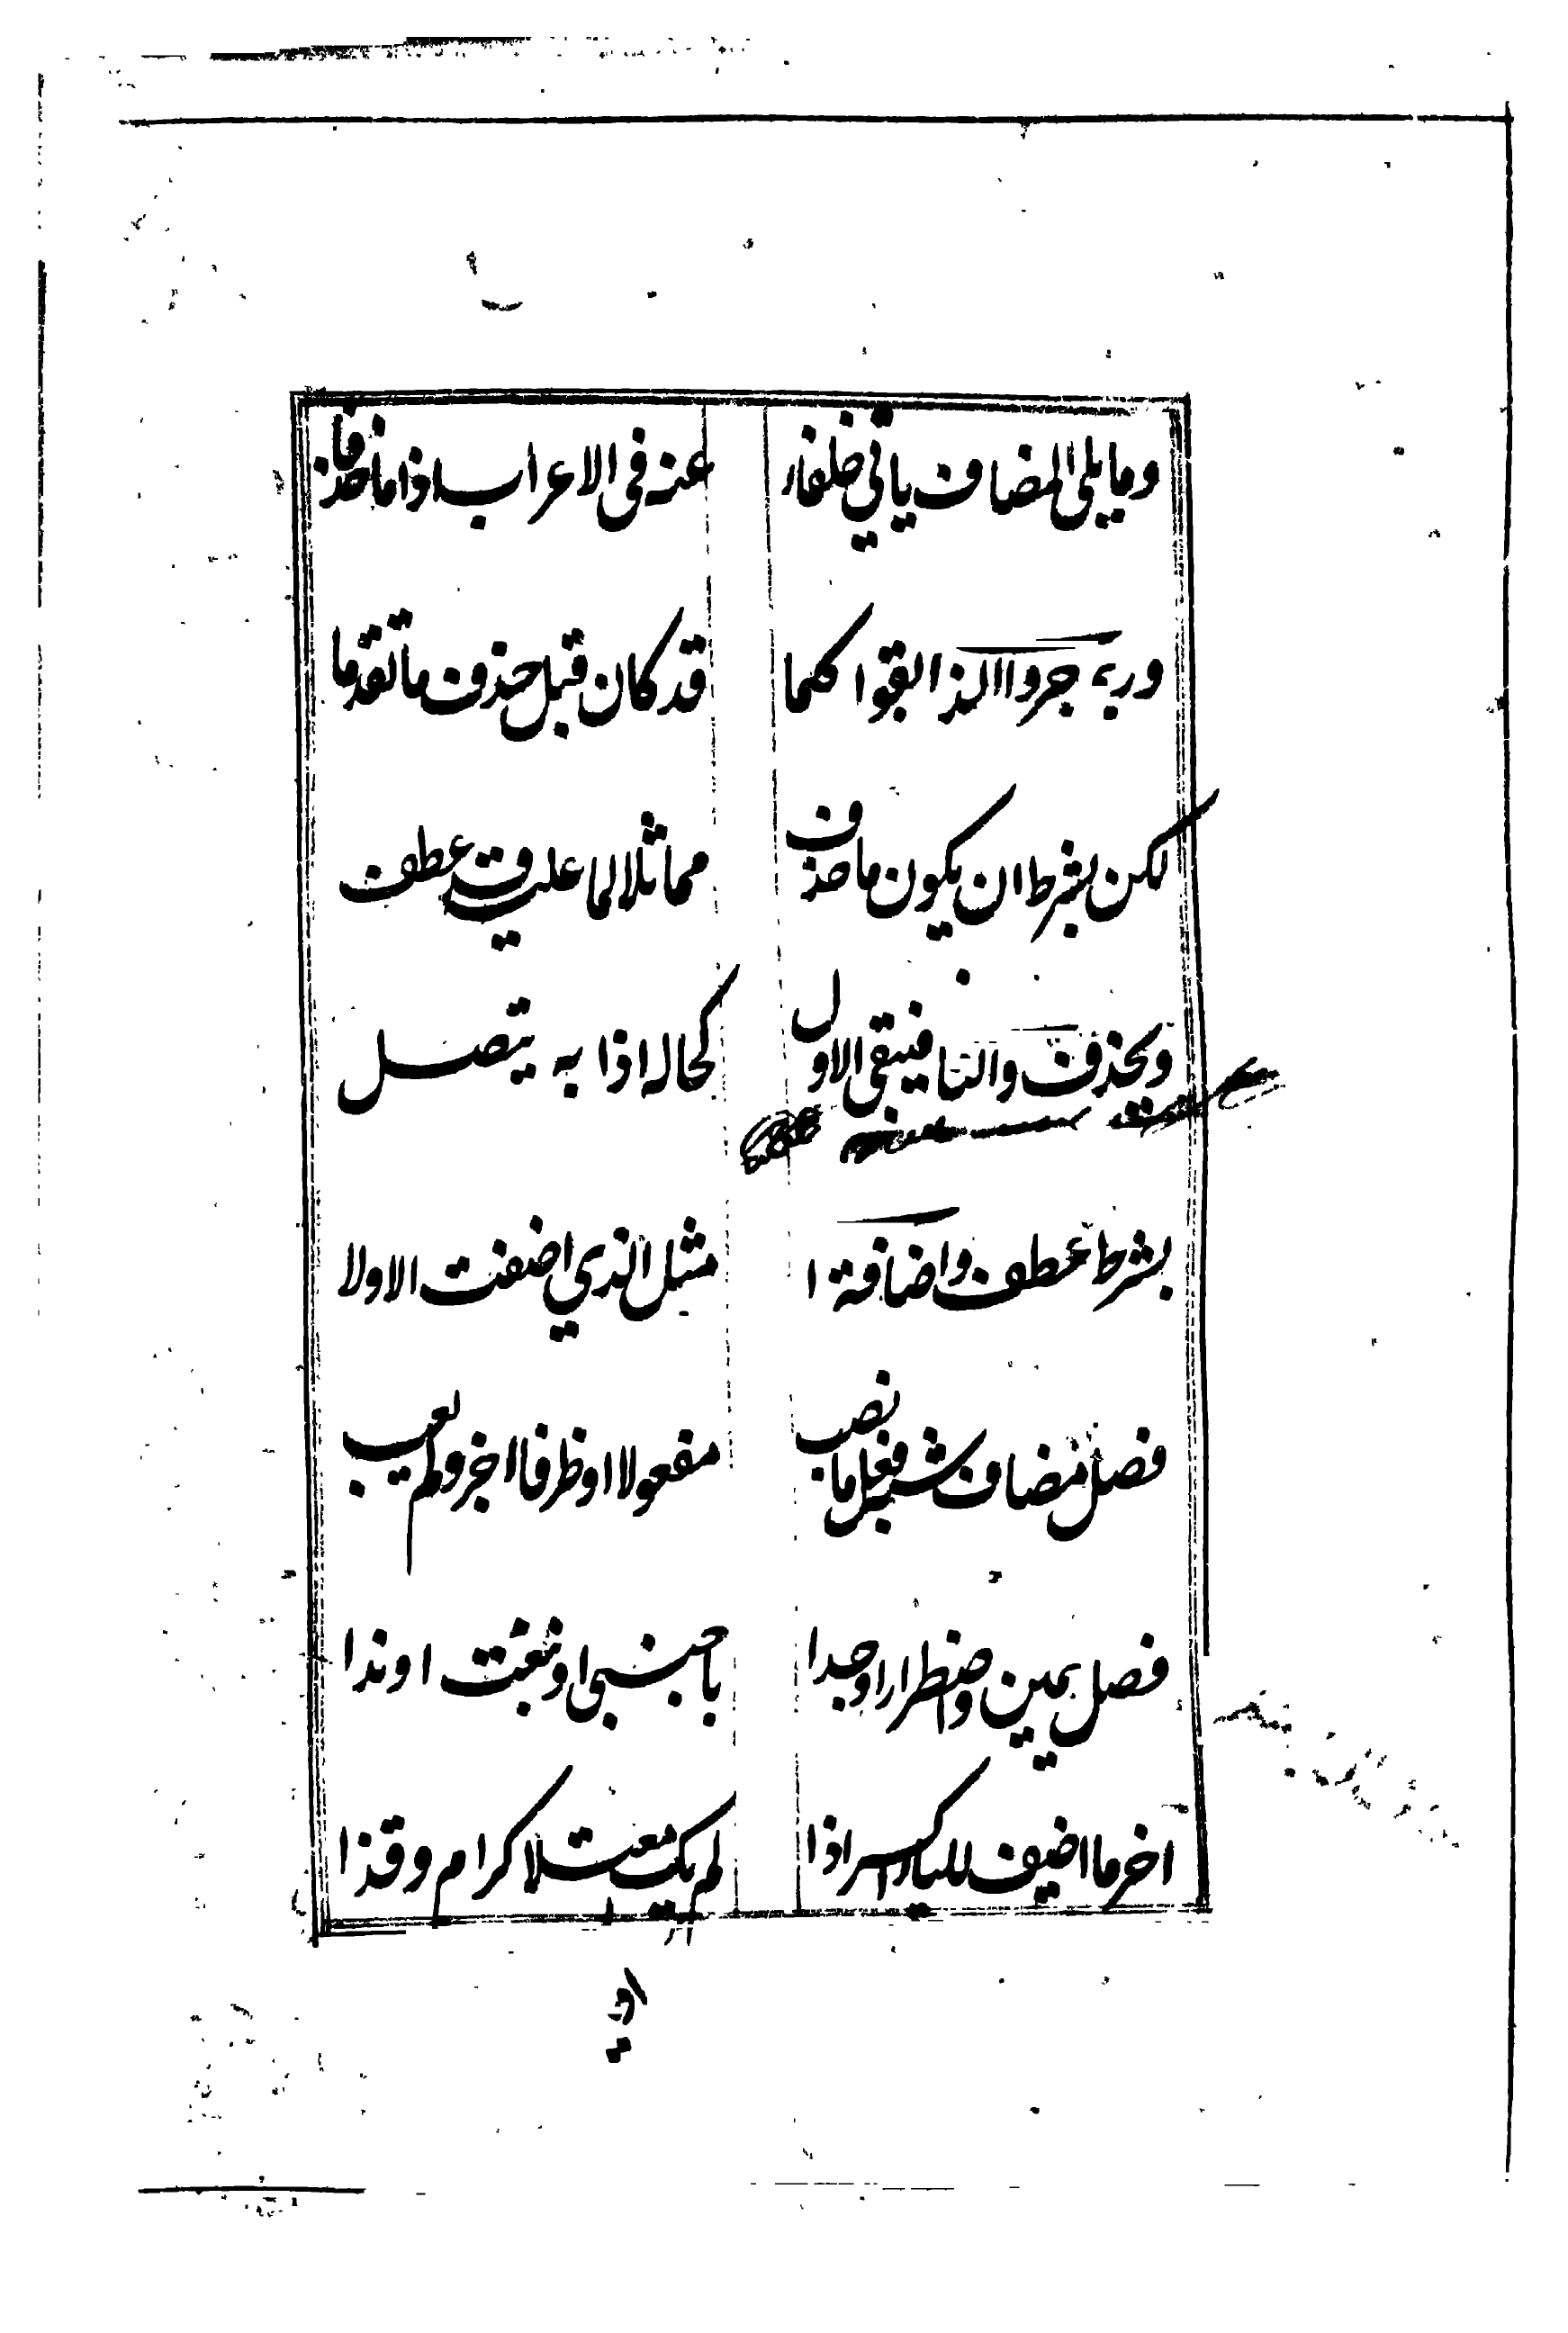 ومايلي المضاف ياتي خلفا عنه في الاعراب اذا ما حذفا
وربما جروا الذ ابقوا كما قد كان قبل حذف ما تقدما
لكن بشرط ان يكون ما حذف مماثلا لما عليه قد عطف
ويحذف والثا فيبقى الاول كحاله اذا به يتصل
بشرط عطف واضافة ا مثل الذي اضفت الاولا
فصل مضاف شبه فعل ما نصب مفعولا او ظرفا اجز ولم يعب
فصل يمين واضطرارا وجدا باجنبي او بنعت او ندا
اخر ما اضيف لليا اكسر اذا لم يك معتلا كرام وقذا